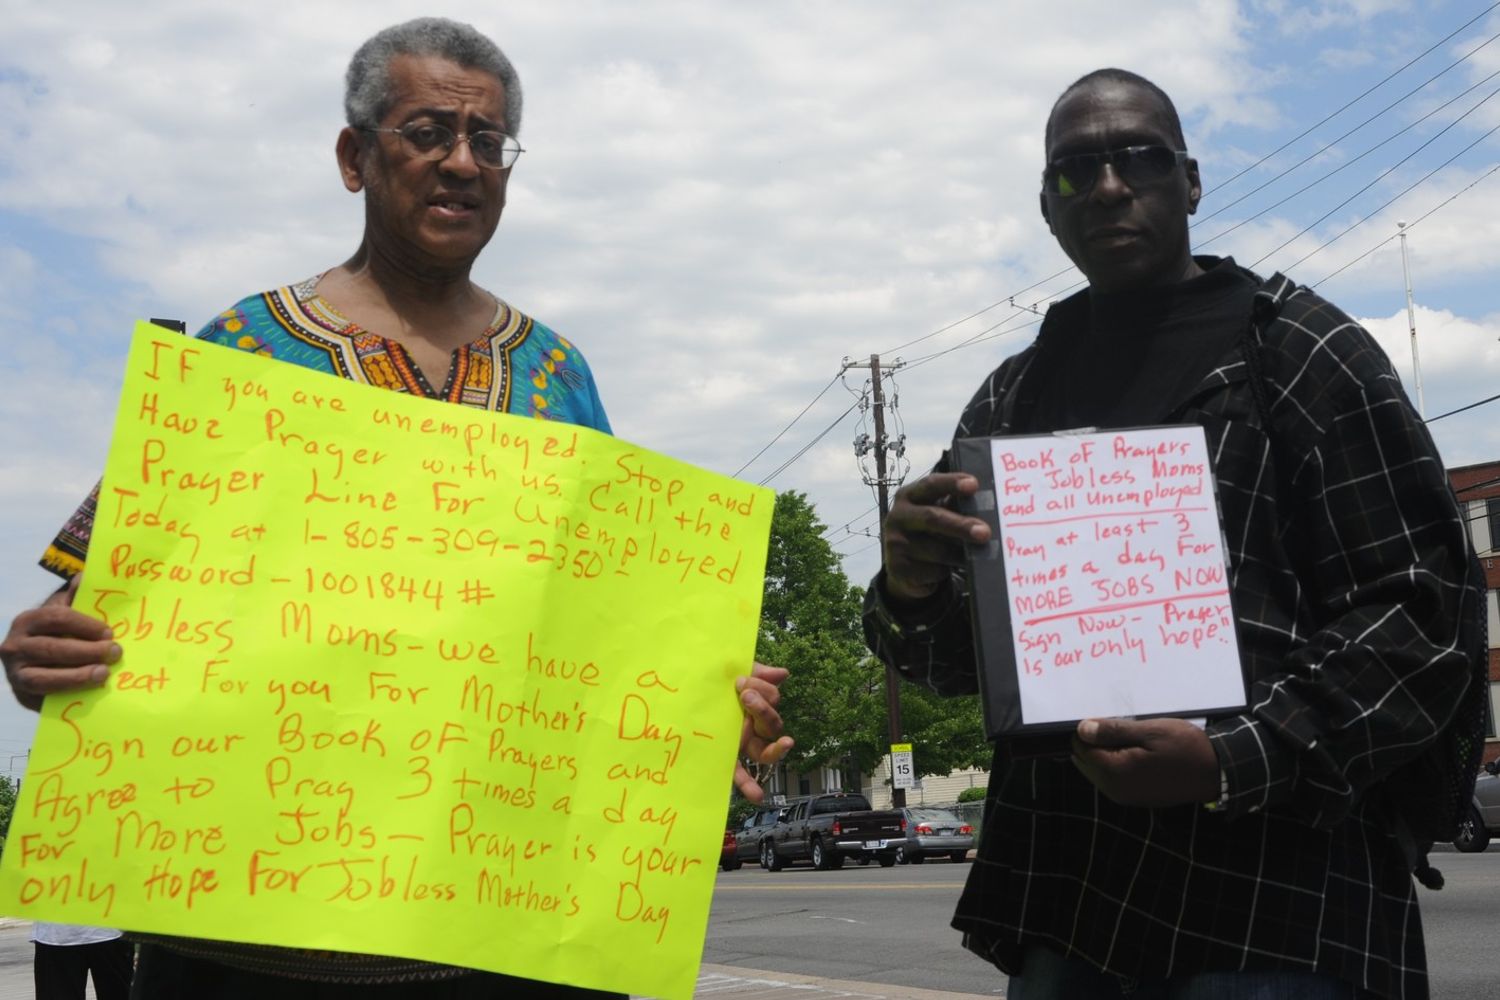 IF you are unemployed. Stop and
Have Prayer with us. Call the
Prayer Line For Unemployed
Today at 1-805-309-2350
Password - 1001844#
Jobless Moms - we have a
eat For you For Mother's Day-
Sign our Book of Prayers and
Agree to Pray 3 times a day
For More Jobs - Prayer is your
only Hope For Jobless Mother's Day
Book of Prayers
For Jobless Moms
and all Unemployed
Pray at least 3
times a day For
MORE JOBS NOW
Sign Now - Prayer
is our only hope"
SCHOOL
SPEED
LIMIT
15